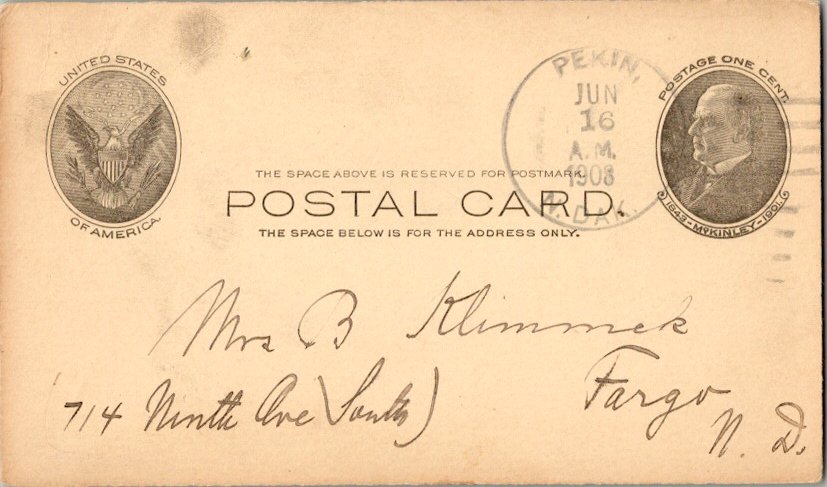 UNITED STATES
OF AMERICA.
PEKIN,
JUN
16
A.M.
1908
N. DAK.
POSTAGE ONE CENT.
1843-McKINLEY-1901.
THE SPACE ABOVE IS RESERVED FOR POSTMARK.
POSTAL CARD.
THE SPACE BELOW IS FOR THE ADDRESS ONLY.
Mrs B Klimmek
714 Ninth Ave (South)
Fargo
N. D.